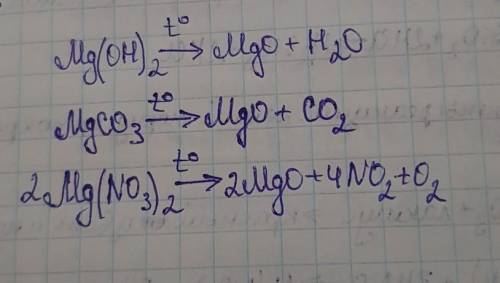 Mg(OH)₂ →t° MgO + H₂O
MgCO₃ →t° MgO + CO₂
2Mg(NO₃)₂ →t° 2MgO + 4NO₂ + O₂